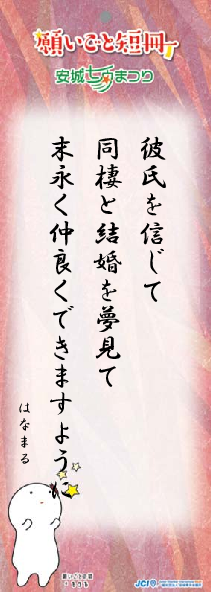 願いごと短冊
安城七夕まつり
彼氏を信じて
同棲と結婚を夢見て
末永く仲良くできますように
はなまる
願いごと短冊
JCI